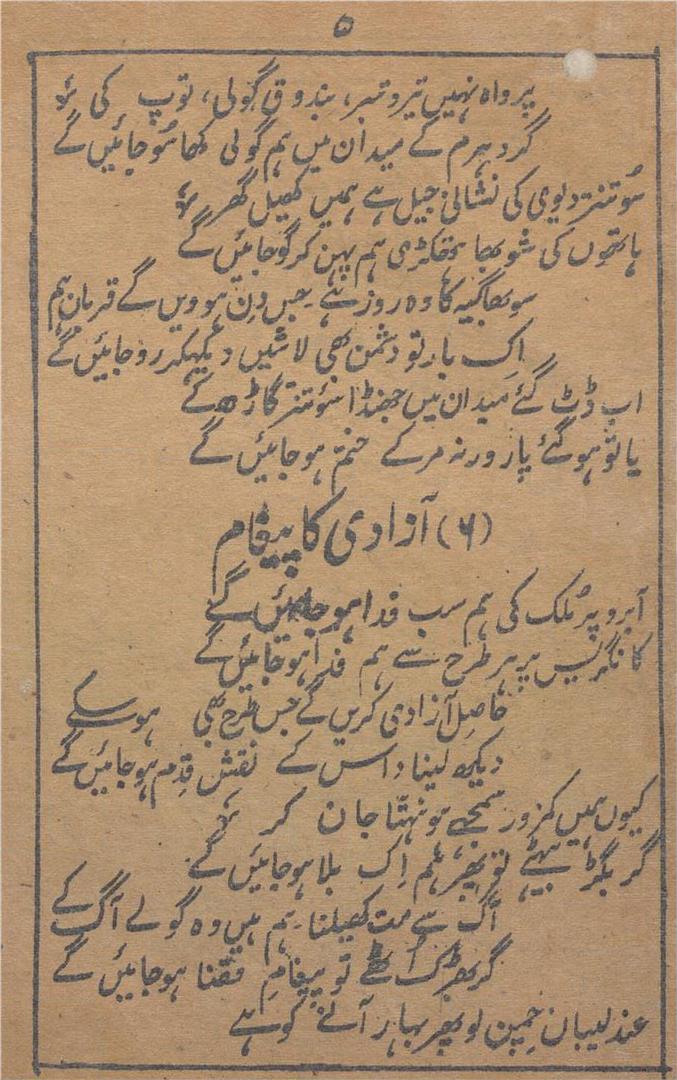 ۵
پرواہ نہیں تیر و تبر، بندوق گولی، توپ کی
گر دھرم کے میدان میں ہم گولی کھا سو جائیں گے
سُوتنتر دیوی کی نشانی جیل ہے ہمیں کھیل گھر
ہاتھوں کی شوبھا ہتھکڑی ہم پہن کر گو جائیں گے
سوبھاگیہ کا وہ روز ہے جس دن ہوویں گے قربان ہم
اِک بار تو دشمن بھی لاشیں دیکھکر رو جائیں گے
اب ڈٹ گئے میدان میں جھنڈا سُوتنتر گاڑھ کے
یا تو ہو گئے پار ورنہ مر کے ختم ہو جائیں گے
(۶) آزادی کا پیغام
آبرو پر مُلک کی ہم سب فدا ہو جائیں گے
کانگریس پر ہر طرح سے ہم فدا ہو جائیں گے
حاصل آزادی کریں گے جس طرح بھی ہو سکے
دیکھ لینا داس کے نقش قدم ہو جائیں گے
کیوں ہمیں کمزور سمجھے ہو نہتّا جان کر
گر بگڑ بیٹھے تو پھر ہم اِک بلا ہو جائیں گے
آگ سے مت کھیلنا ہم ہیں وہ گولے آگ کے
گر بھڑک اُٹھے تو پیغامِ قضا ہو جائیں گے
عندلیبان چمن لو پھر بہار آنے کو ہے